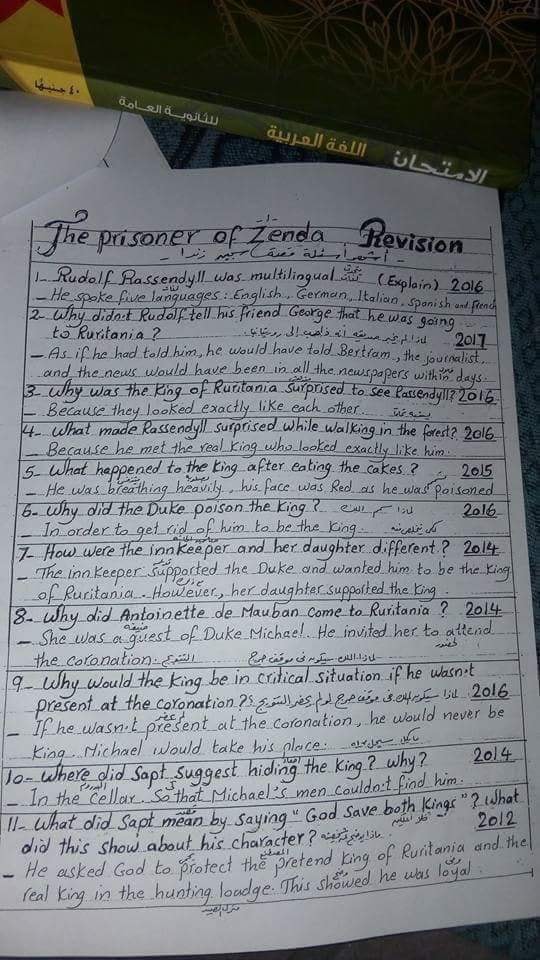 ٤٠ جنيهًا
للثانوية العامة
اللغة العربية
الامتحان
The prisoner of Zenda Revision
- أشهر أسئلة قصة سجين زندا -
1- Rudolf Rassendyll was multilingual (Explain) 2016
- He spoke five languages: English, German, Italian, Spanish and French
2- Why didn't Rudolf tell his friend George that he was going
to Ruritania? 2017
- As if he had told him, he would have told Bertram, the journalist
and the news would have been in all the newspapers within days.
3- Why was the King of Ruritania surprised to see Rassendyll? 2016
- Because they looked exactly like each other
4- What made Rassendyll surprised while walking in the forest? 2016
- Because he met the real king who looked exactly like him.
5- What happened to the King after eating the cakes? 2015
- He was breathing heavily, his face was Red as he was poisoned
6- Why did the Duke poison the King? 2016
- In order to get rid of him to be the King.
7- How were the innKeeper and her daughter different? 2014
- The innKeeper supported the Duke and wanted him to be the King
of Ruritania. However, her daughter supported the King.
8- Why did Antoinette de Mauban come to Ruritania? 2014
- She was a guest of Duke Michael. He invited her to attend
the coronation. التتويج
9- Why would the King be in critical situation if he wasn't
present at the coronation? 2016
- If he wasn't present at the coronation, he would never be
King. Michael would take his place.
10- Where did Sapt suggest hiding the King? Why? 2014
- In the Cellar. So that Michael's men couldn't find him.
11- What did Sapt mean by saying "God save both Kings"? What
did this show about his character? 2012
- He asked God to protect the pretend King of Ruritania and the
real King in the hunting loadge. This showed he was loyal.